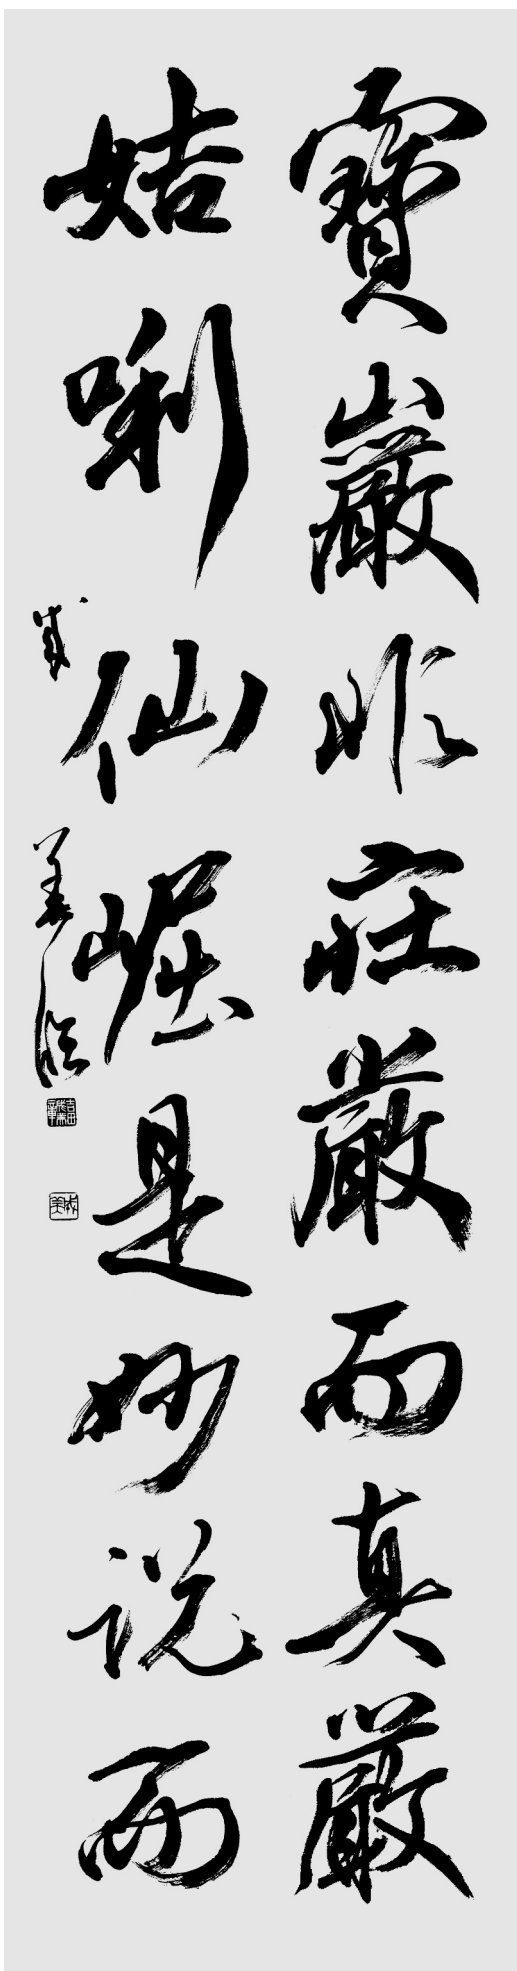 寶巖非莊嚴而真嚴
姑唎仙崛是妙说而
成美臨